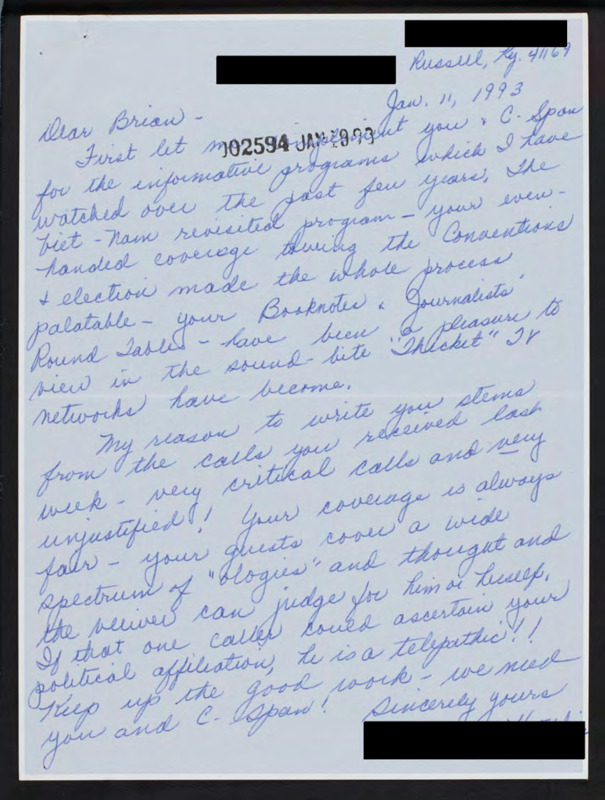 Russell, Ky. 41169
Jan. 11, 1993
Dear Brian -
002594 JAN 1993
First let me compliment you & C-Span
for the informative programs which I have
watched over the past few years. The
Viet-Nam revisited program - your even-
handed coverage towing the Conventions
& election made the whole process
palatable - your Booknotes & Journalists'
Round Tables - have been a pleasure to
view in the sound-bite "Thicket" TV
networks have become.
My reason to write you stems
from the calls you received last
week - very critical calls and very
unjustified! Your coverage is always
fair - your guests cover a wide
spectrum of "ologies" and thought and
the veiwer can judge for him or herself.
If that one caller could ascertain your
political affiliation, he is a telepathic!!
Keep up the good work - we need
you and C-Span!
Sincerely yours